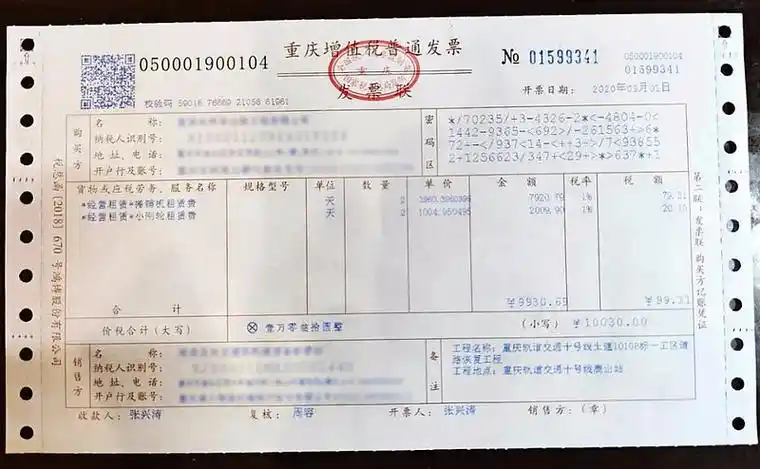 050001900104
重庆增值税普通发票
发票联
№ 01599341
050001900104
01599341
校验码 59016 76669 21056 61961
开票日期: 2020年05月01日
购买方
名 称:
纳税人识别号:
地址、电话:
开户行及账号:
密码区
*/70235/+3-4326-2*<-4804-0<
1442-9365-<692>/-261563+>6*
72--</937<14-<++3->/7<93655
2+1256623/347+<29+>*>637*+1
货物或应税劳务、服务名称 规格型号 单位 数量 单价 金额 税率 税额
*经营租赁*摊铺机租赁费 天 2 7920.79 1% 79.21
*经营租赁*小刚轮租赁费 天 2 1004.950495 2009.90 1% 20.10
合 计 ¥9930.69 ¥99.31
价税合计(大写) ⊗ 壹万零叁拾圆整 (小写) ¥10030.00
销售方
名 称:
纳税人识别号:
地址、电话:
开户行及账号:
备注
工程名称:重庆轨道交通十号线土建10108标一工区道
路恢复工程
工程地点:重庆轨道交通十号线
收款人: 张兴涛 复核: 周容 开票人: 张兴涛 销售方:(章)
税总函〔2018〕670号鸿博股份有限公司
第二联:发票联 购买方记账凭证